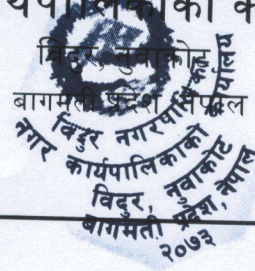 र्यपालिकाको का
विदुर, नुवाकोट
बागमती प्रदेश, नेपाल
विदुर नगरपालिका
नगर कार्यपालिकाको कार्यालय
विदुर, नुवाकोट
बागमती प्रदेश, नेपाल
२०७३